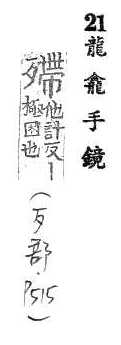 21龍龕手鏡
殢他計反丨極困也
（歹部．P515）